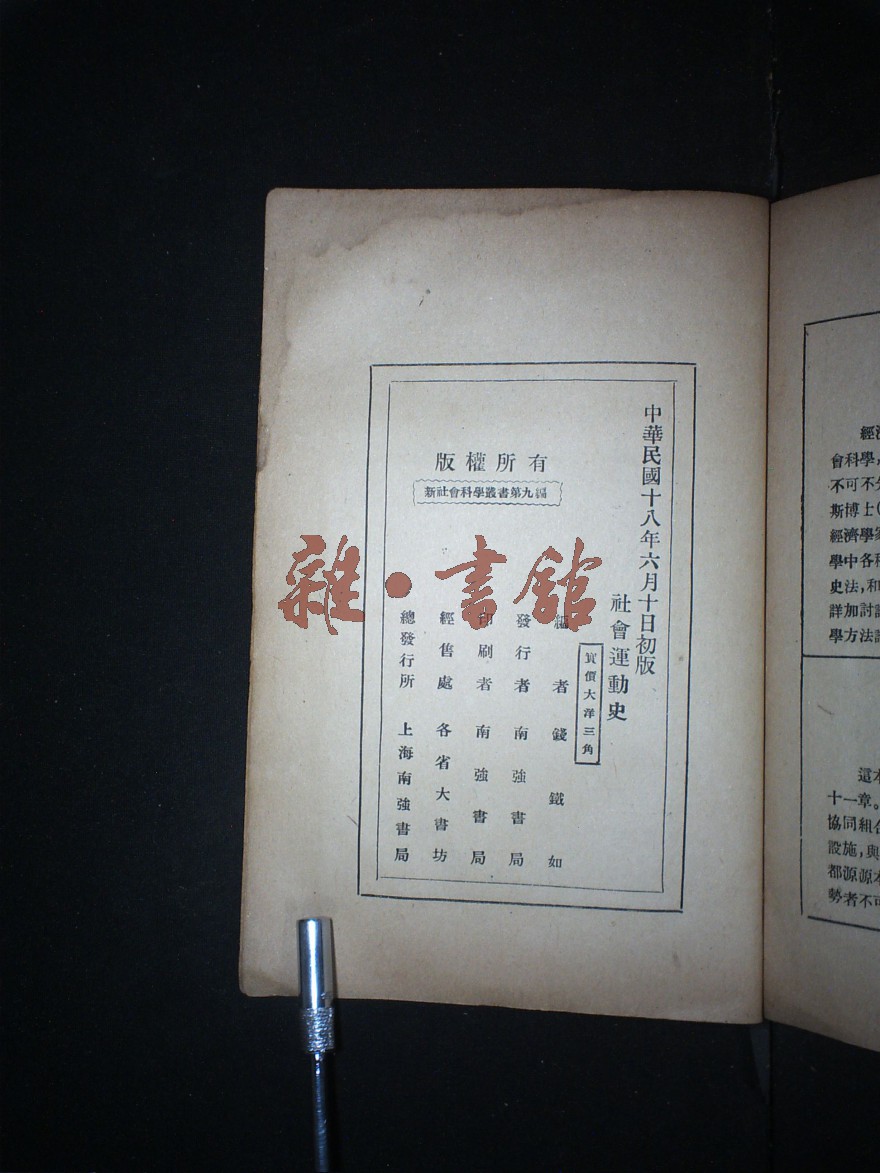 中華民國十八年六月十日初版
社會運動史
實價大洋三角
編者 錢鐵如
發行者 南強書局
印刷者 南強書局
經售處 各省大書坊
總發行所 上海南強書局
版權所有
新社會科學叢書第九編
雜·書館
經濟
會科學，
不可不
斯博士(
經濟學家
學中各種
史法，和
詳加討論
學方法論
這本
十一章。
協同組合
設施，與
都源源本
勢者不可